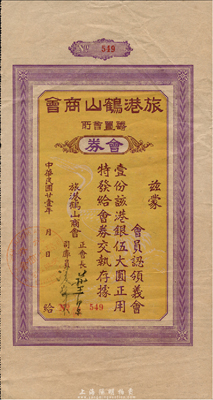 No 549
會商山鶴港旅
籌置會所
券會
茲蒙
會員認領義會
壹份該港銀伍大圓正用
特發給會券交執存據
旅港鶴山商會
正會長
司庫員
中華民國廿壹年 月 日
給 No 549